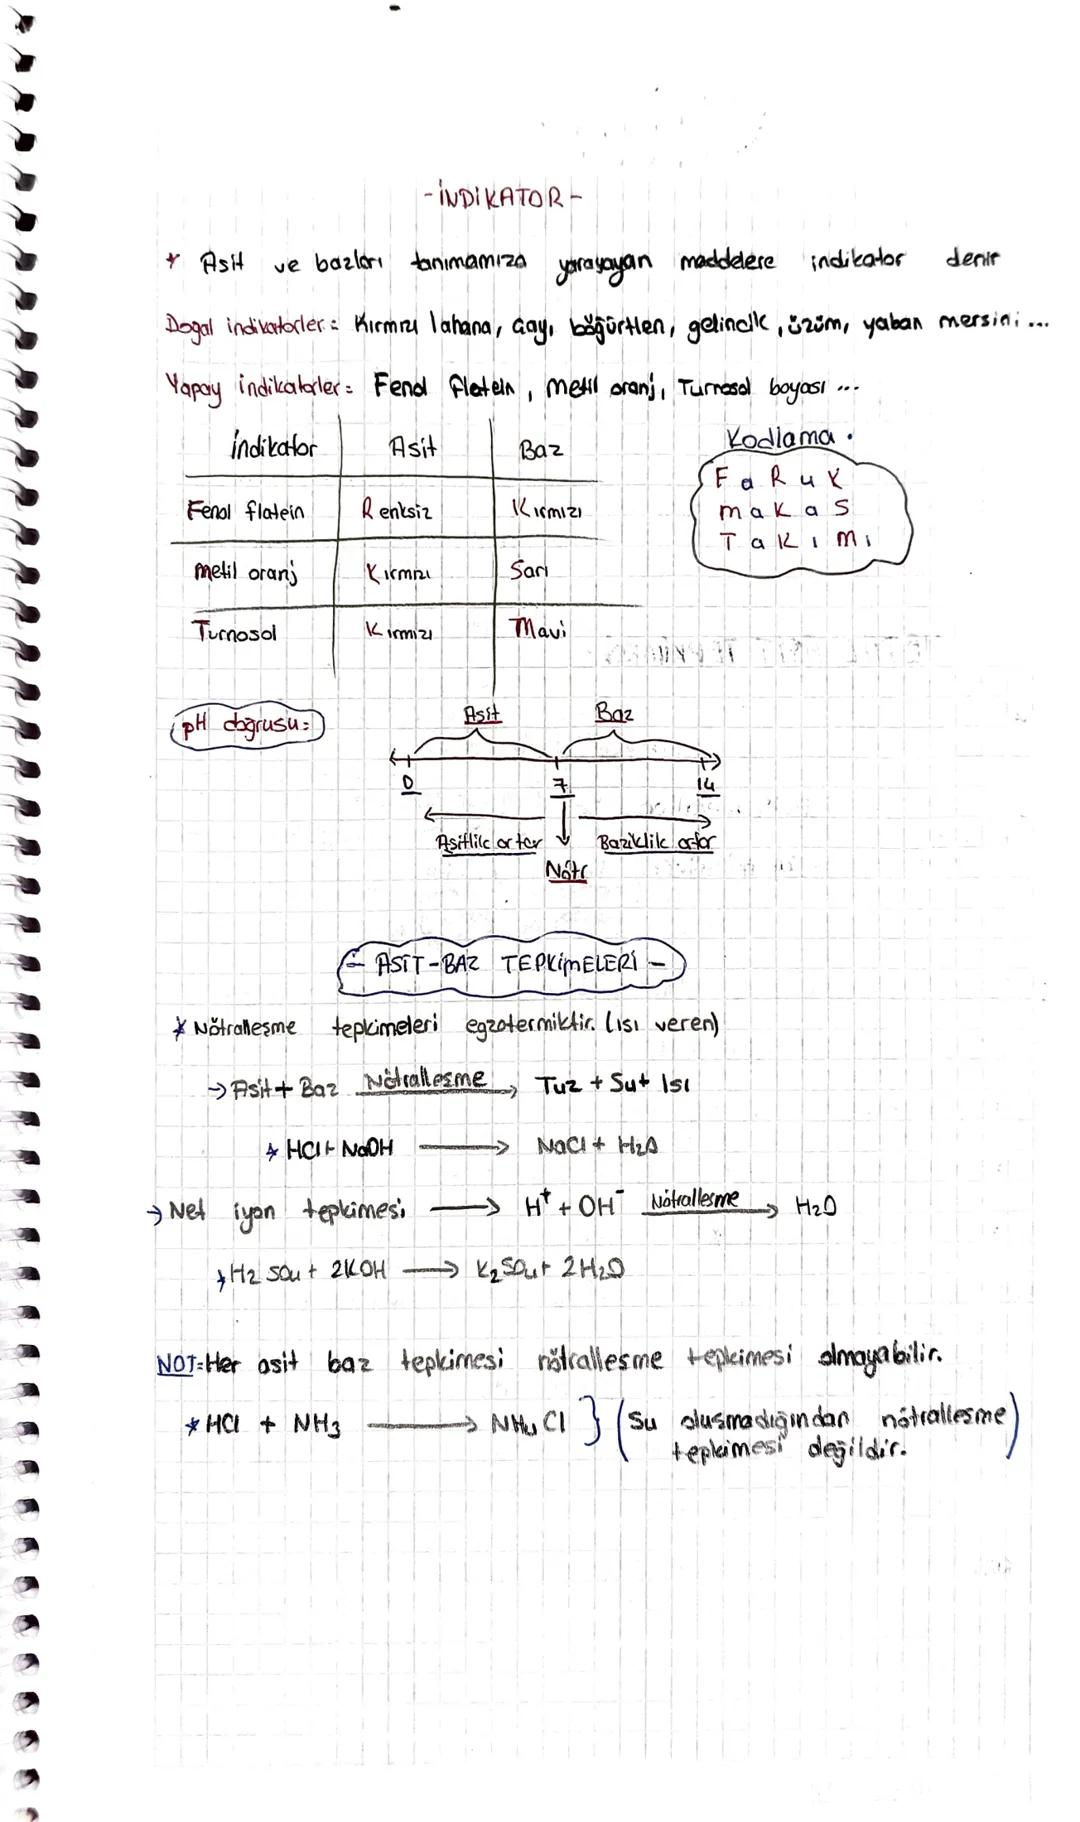 -İNDİKATOR-
* Asit ve bazları tanımamıza yarayayan maddelere indikator denir
Dogal indikatorler: Kırmızı lahana, çay, böğürtlen, gelincik, üzüm, yaban mersini...
Yapay indikatorler: Fenol fletein, metil oranj, Turnosol boyası ...
Kodlama.
İndikator Asit Baz
F a R u K
Fenol flatein Renksiz Kırmızı
m a K a S
T a K ı M ı
Metil oranj Kırmızı Sarı
Turnosol Kırmızı Mavi
pH doğrusu:
Asit Baz
0 7 14
Asitlik artar Baziklik artar
Nötr
- ASİT-BAZ TEPKİMELERİ -
* Nötralleşme tepkimeleri egzotermiktir. (ısı veren)
→ Asit + Baz Nötralleşme → Tuz + Su + Isı
* HCl + NaOH → NaCl + H₂O
→ Net iyon tepkimesi → H⁺ + OH⁻ Nötrallesme → H₂O
* H₂SO₄ + 2KOH → K₂SO₄ + 2H₂O
NOT=Her asit baz tepkimesi nötrallesme tepkimesi olmayabilir.
* HCl + NH₃ → NH₄Cl } (Su olusmadığından nötrallesme
tepkimesi değildir.)